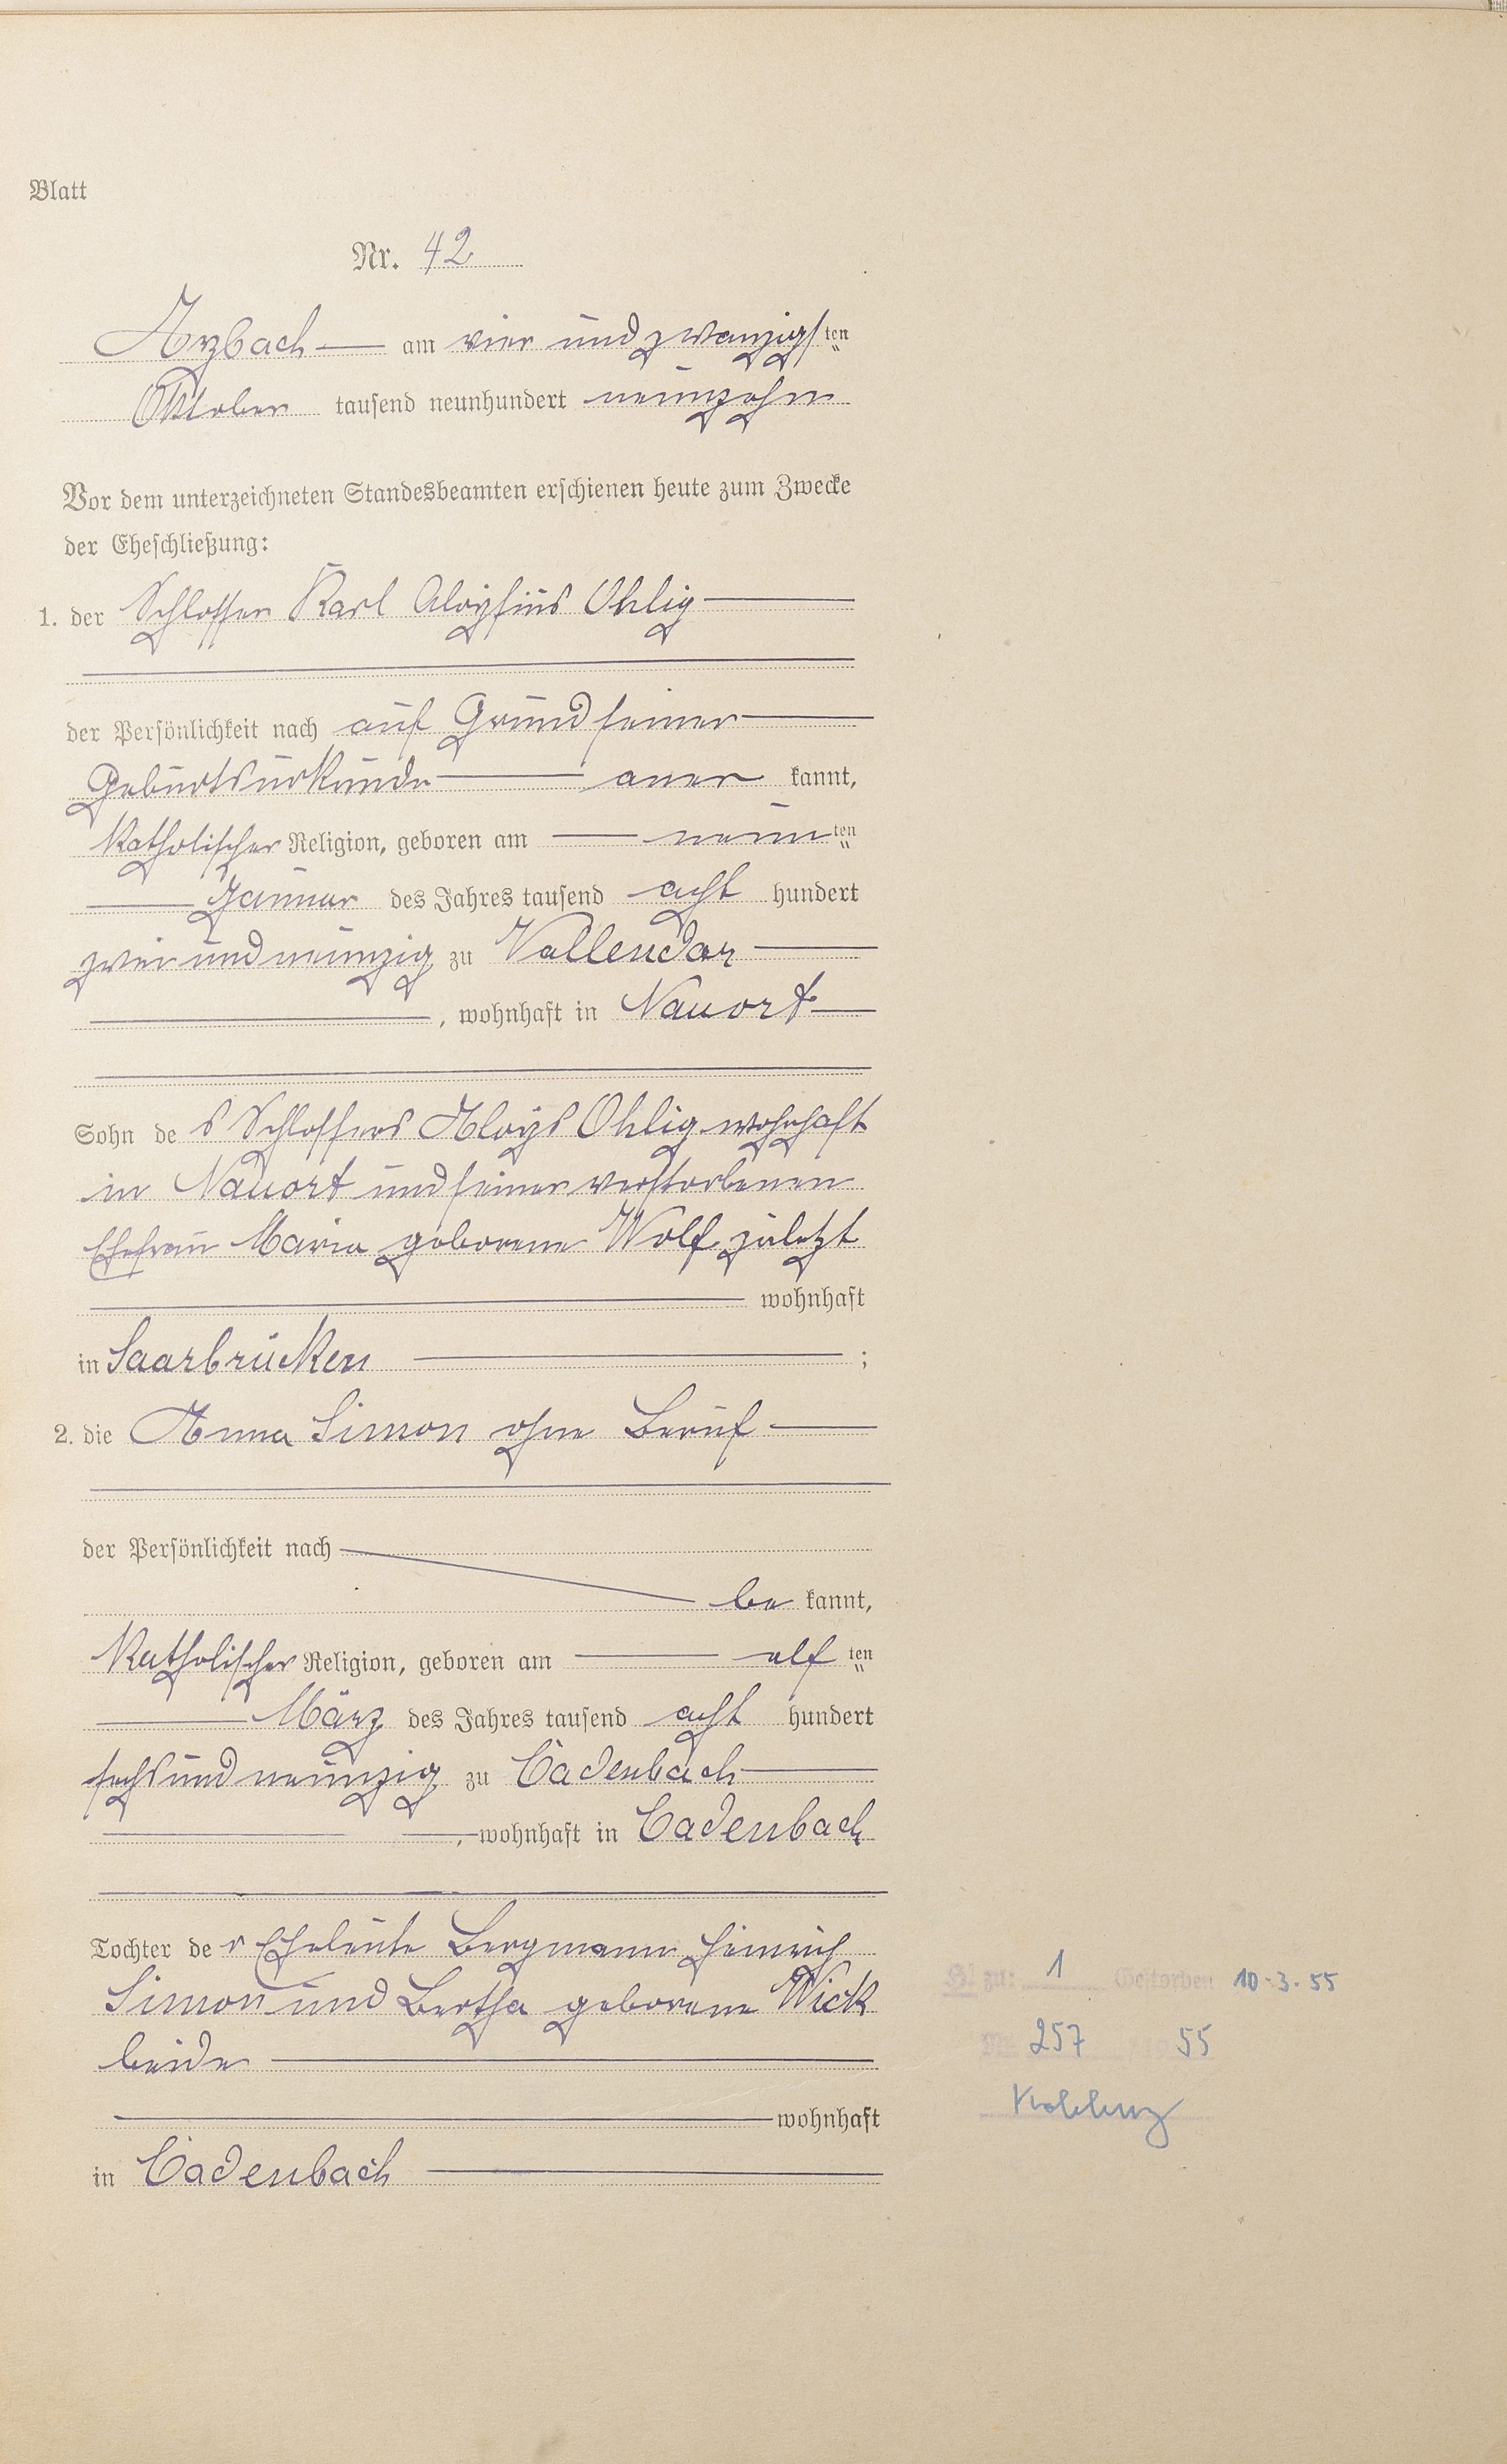 Blatt
Nr. 42
Arzbach am vier und zwanzigsten
Oktober tausend neunhundert neunzehn
Vor dem unterzeichneten Standesbeamten erschienen heute zum Zwecke
der Eheschließung:
1. der Schlosser Karl Aloysius Ohlig
der Persönlichkeit nach auf Grund seiner
Geburtsurkunde aner kannt,
katholischer Religion, geboren am neunten
Januar des Jahres tausend acht hundert
zwei und neunzig zu Vallendar
, wohnhaft in Nauort
Sohn des Schlossers Aloys Ohlig wohnhaft
in Nauort und seiner verstorbenen
Ehefrau Maria geborene Wolf zuletzt
wohnhaft
in Saarbrücken ;
2. die Anna Simon ohne Beruf
der Persönlichkeit nach
be kannt,
katholischer Religion, geboren am elf ten
März des Jahres tausend acht hundert
sechs und neunzig zu Cadenbach
, wohnhaft in Cadenbach
Tochter der Eheleute Bergmann Heinrich
Simon und Bertha geborene Wick
beide
wohnhaft
in Cadenbach
zu: 1 Gestorben 10-3.55
Nr. 257 55
Koblenz